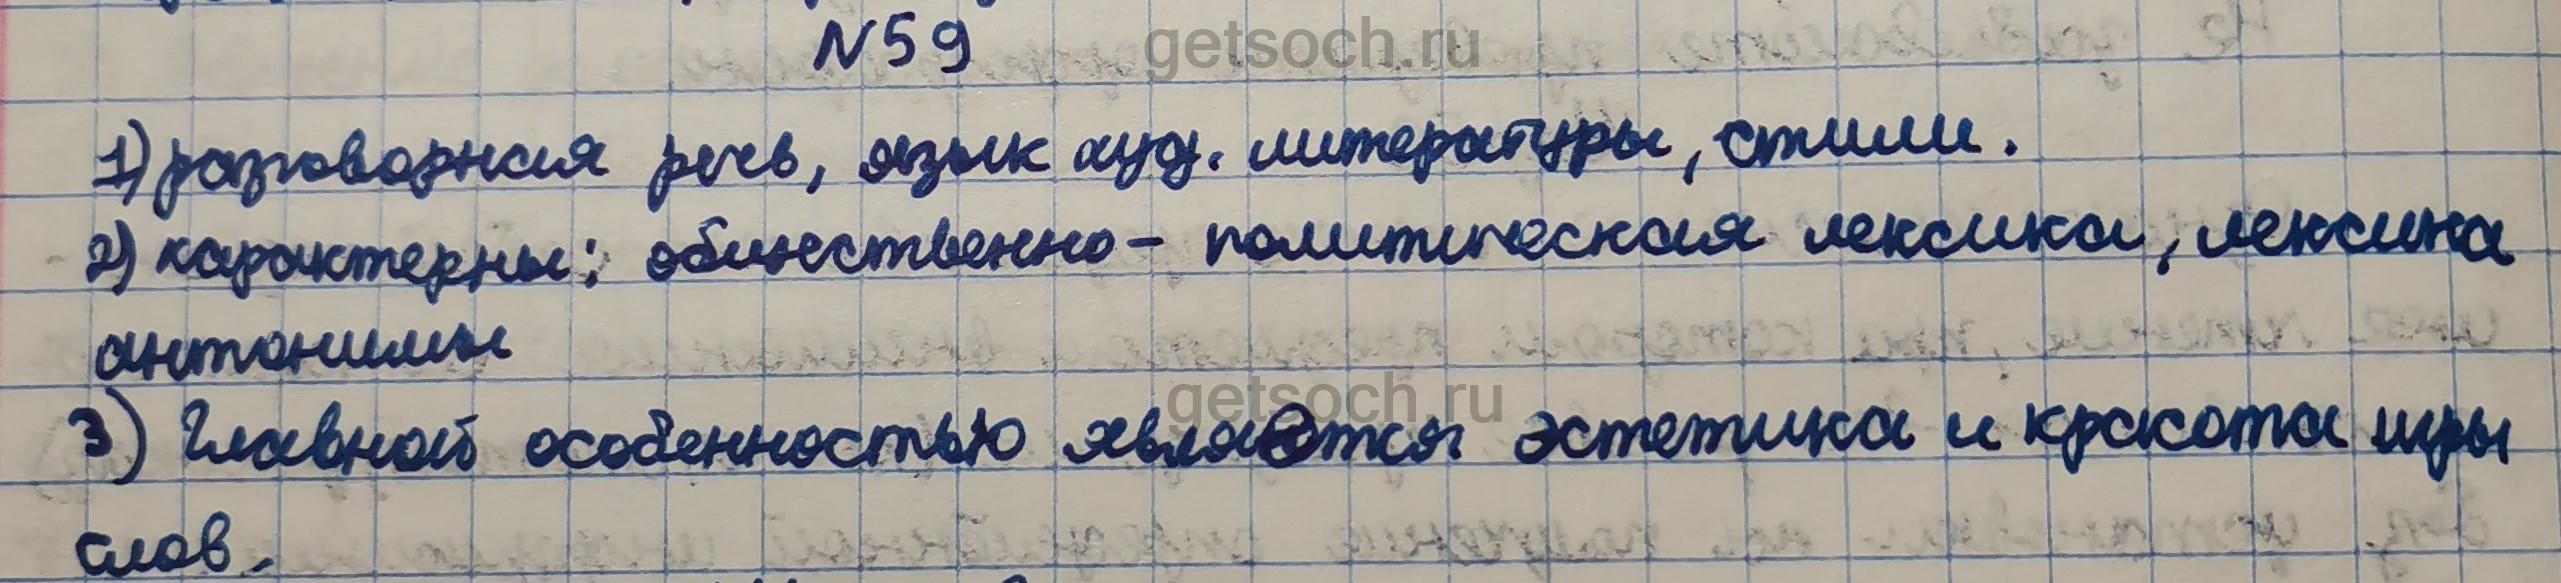 N59
getsoch.ru
1) разговорная речь, язык худ. литературы, стили.
2) характерны: общественно - политическая лексика, лексика
антонимы
getsoch.ru
3) Главной особенностью является эстетика и красота игры
слов.